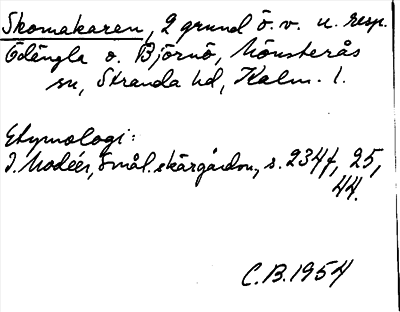 Skomakaren, 2 grund ö. v. u. resp.
Ödängla o. Björnö, Mönsterås
sn, Stranda hd, Kalm. l.
Etymologi:
I. Modéer, Smål. skärgårdon, s. 234f, 25,
44.
C.B. 1954